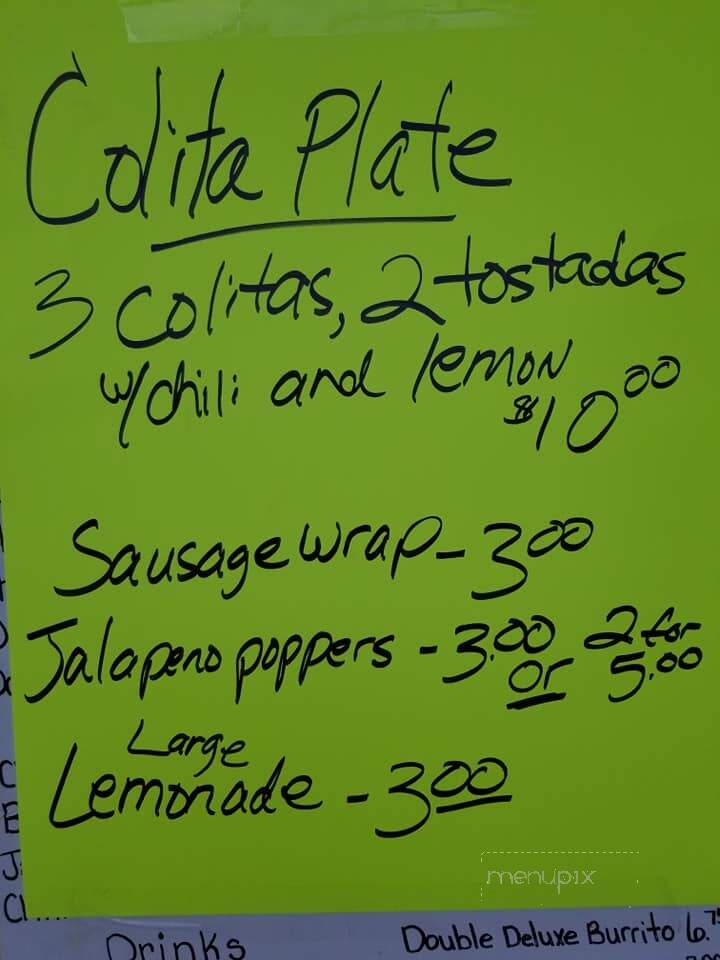 Colita Plate
3 Colitas, 2 tostadas
w/chili and lemon
$10 00
Sausage wrap - 3 00
Jalapeno poppers - 3.00 or 2 for 5.00
Large
Lemonade - 3 00
menupix
Drinks
Double Deluxe Burrito 6.75